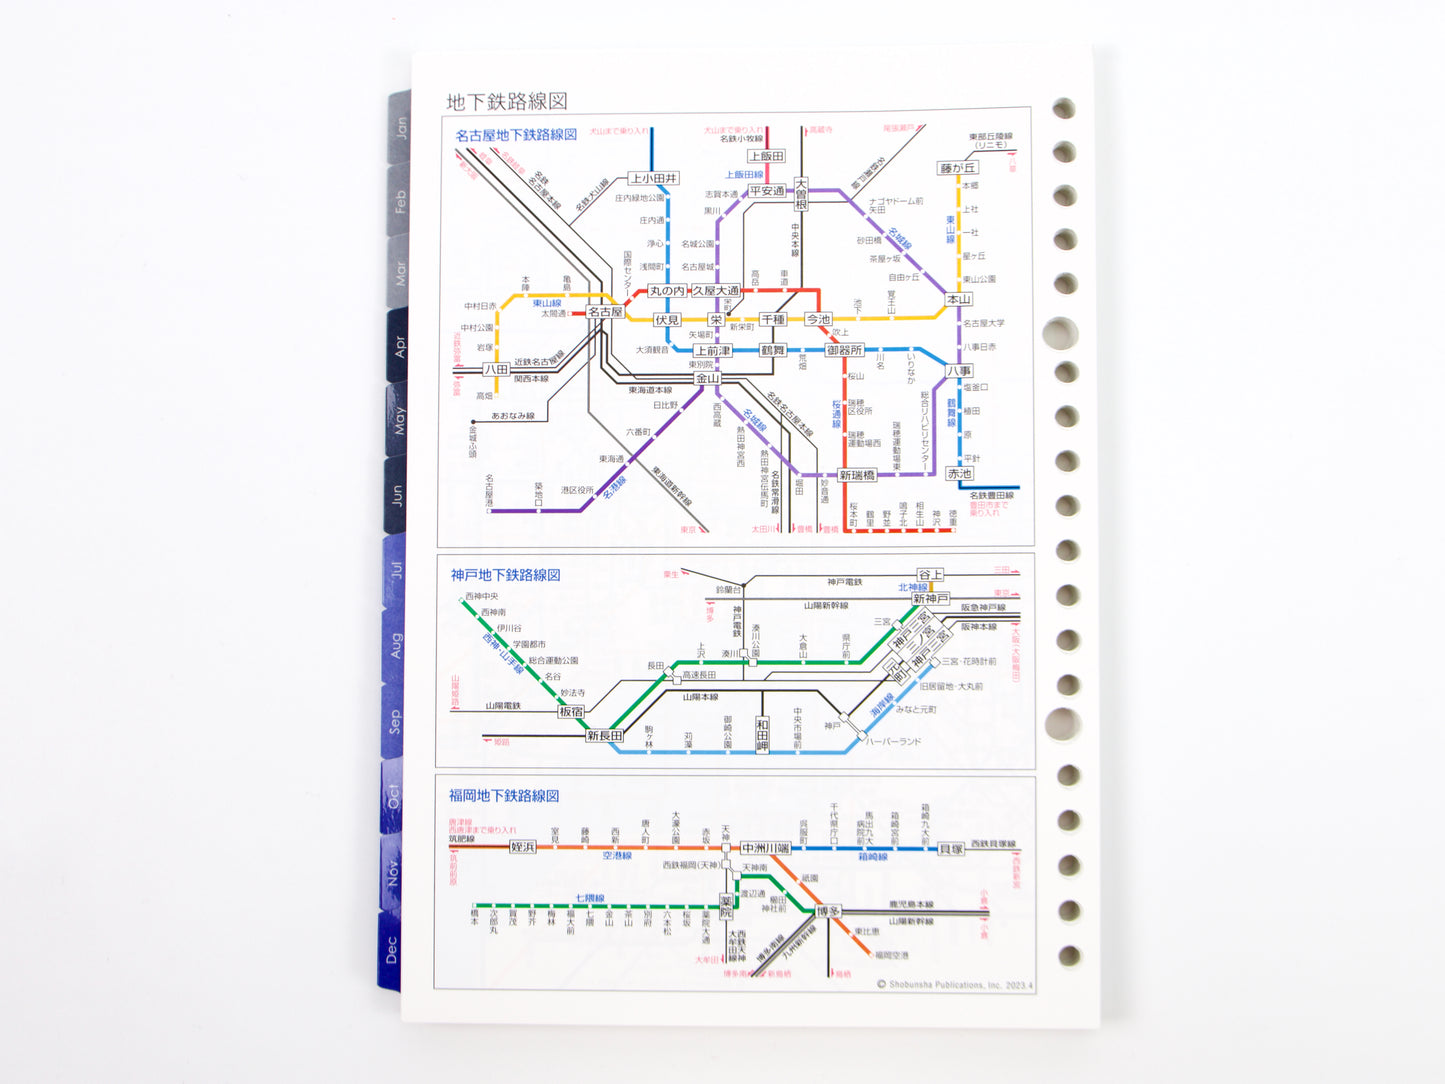 地下鉄路線図
Jan
Feb
Mar
Apr
May
Jun
Jul
Aug
Sep
Oct
Nov
Dec
名古屋地下鉄路線図
犬山まで乗り入れ
犬山まで乗り入れ
名鉄小牧線
高蔵寺
尾張瀬戸
東部丘陵線
(リニモ)
八草
新大阪
岐阜
名鉄岐阜
名鉄
名古屋本線
名鉄犬山線
上小田井
上飯田
上飯田線
志賀本通
平安通
大曽根
名鉄瀬戸線
藤が丘
本郷
上社
一社
星ヶ丘
東山公園
東山線
庄内緑地公園
庄内通
浄心
浅間町
黒川
名城公園
名古屋城
中央本線
ナゴヤドーム前
矢田
砂田橋
茶屋ヶ坂
自由ヶ丘
名城線
国際センター
本陣
亀島
中村日赤
中村公園
岩塚
東山線
太閤通
名古屋
丸の内
久屋大通
高岳
車道
栄町
伏見
栄
新栄町
千種
今池
池下
覚王山
本山
吹上
矢場町
大須観音
上前津
鶴舞
荒畑
御器所
川名
いりなか
名古屋大学
八事日赤
八事
近鉄弥富
弥富
八田
高畑
近鉄名古屋線
関西本線
東別院
金山
東海道本線
あおなみ線
金城ふ頭
日比野
六番町
東海通
港区役所
名港線
築地口
名古屋港
東海道新幹線
東京
西高蔵
名城線
熱田神宮西
熱田神宮伝馬町
名鉄名古屋本線
名鉄常滑線
太田川
豊橋
豊橋
堀田
妙音通
新瑞橋
桜山
瑞穂
区役所
桜通線
瑞穂
運動場西
瑞穂運動場東
総合リハビリセンター
鶴舞線
塩釜口
植田
原
平針
赤池
名鉄豊田線
豊田市まで
乗り入れ
桜本町
鶴里
野並
鳴子北
相生山
神沢
徳重
神戸地下鉄路線図
粟生
鈴蘭台
神戸電鉄
谷上
三田
北神線
新神戸
東京
山陽新幹線
博多
神戸電鉄
阪急神戸線
阪神本線
大阪(大阪梅田)
西神中央
西神南
伊川谷
学園都市
総合運動公園
名谷
妙法寺
西神・山手線
板宿
新長田
長田
高速長田
上沢
湊川
湊川公園
大倉山
県庁前
三宮
神戸三宮
三ノ宮
神戸三宮
元町
三宮・花時計前
旧居留地・大丸前
みなと元町
海岸線
ハーバーランド
神戸
山陽姫路
山陽電鉄
山陽本線
姫路
駒ヶ林
苅藻
御崎公園
和田岬
中央市場前
福岡地下鉄路線図
唐津線
西唐津まで乗り入れ
筑肥線
筑前前原
姪浜
室見
藤崎
西新
唐人町
大濠公園
赤坂
天神
空港線
中洲川端
呉服町
千代県庁口
馬出九大病院前
箱崎宮前
箱崎九大前
箱崎線
貝塚
西鉄貝塚線
西鉄新宮
西鉄福岡(天神)
天神南
渡辺通
櫛田
神社前
祇園
七隈線
橋本
次郎丸
賀茂
野芥
梅林
福大前
七隈
金山
茶山
別府
六本松
桜坂
薬院大通
薬院
西鉄天神
大牟田線
大牟田
博多
東比恵
福岡空港
鹿児島本線
山陽新幹線
小倉
小倉
博多南線
九州新幹線
博多南
新鳥栖
鳥栖
© Shobunsha Publications, Inc. 2023.4